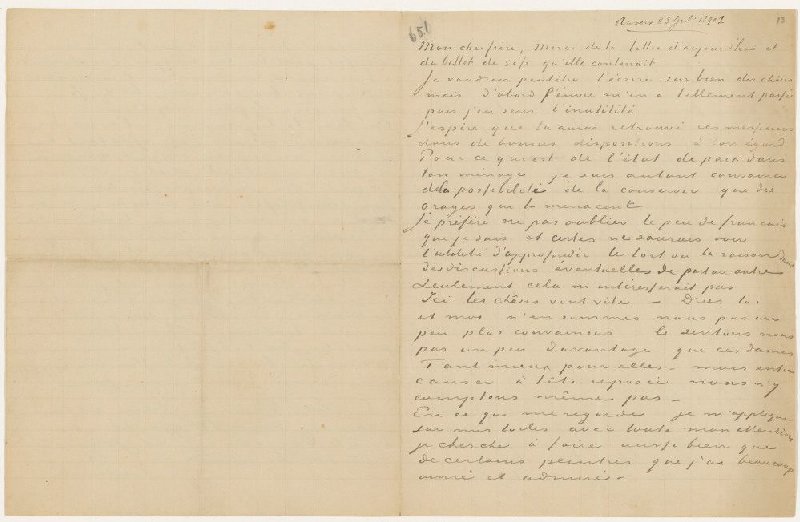 651
Auvers 23 Juillet 1890
13
Mon cher frère, merci de ta lettre d'aujourd'hui et
du billet de 50 fr qu'elle contenait
Je voudrais peutêtre t'écrire sur bien des choses
mais d'abord l'envie m'en a tellement passée
puis j'en sens l'inutilité
J'espère que tu auras retrouvé ces messieurs
dans de bonnes dispositions à ton égard
Pour ce qui est de l'état de paix dans
ton ménage je suis autant convaincu
de la possibilité de la conserver que des
orages qui le menacent
Je préfère ne pas oublier le peu de français
que je sais et certes ne saurais voir
l'utilité d'approfondir le tort ou la raison dans
des discussions éventuelles de part ou autre
Seulement cela m'intéresserait pas
Ici les choses vont vite – Dries toi
et moi n'en sommes nous pas un
peu plus convaincus le sentons nous
pas un peu davantage que ces dames
Tant mieux pour elles – mais enfin
causer à tête reposée nous n'y
comptons même pas –
En ce qui me regarde je m'applique
sur mes toiles avec toute mon attention
je cherche à faire aussi bien que
de certains peintres que j'ai beaucoup
aimé et admirés